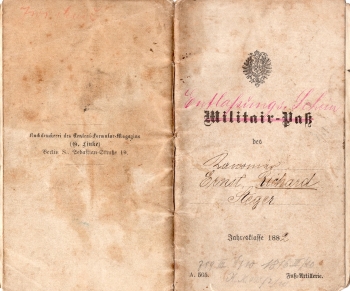 Buchdruckerei des Central-Formular-Magazins
(G. Linke)
Berlin S., Sebastian-Straße 18.
Entlassungs-Schein
Militair-Paß
des
Kanonier
Ernst Richard
Steger
Jahresklasse 1882
A. 505.
Fuß-Artillerie.